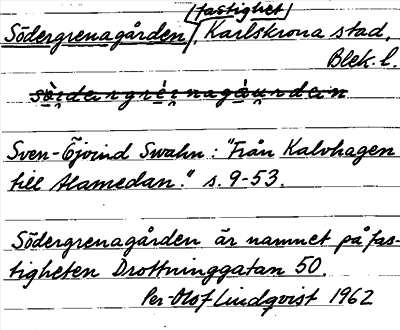 fastighet
Södergrenagården, Karlskrona stad,
Blek. l.
Sven-Öjvind Swahn: "Från Kalvhagen
till Alamedan." s. 9-53.
Södergrenagården är namnet på fas-
tigheten Drottninggatan 50.
Per-Olof Lindqvist 1962